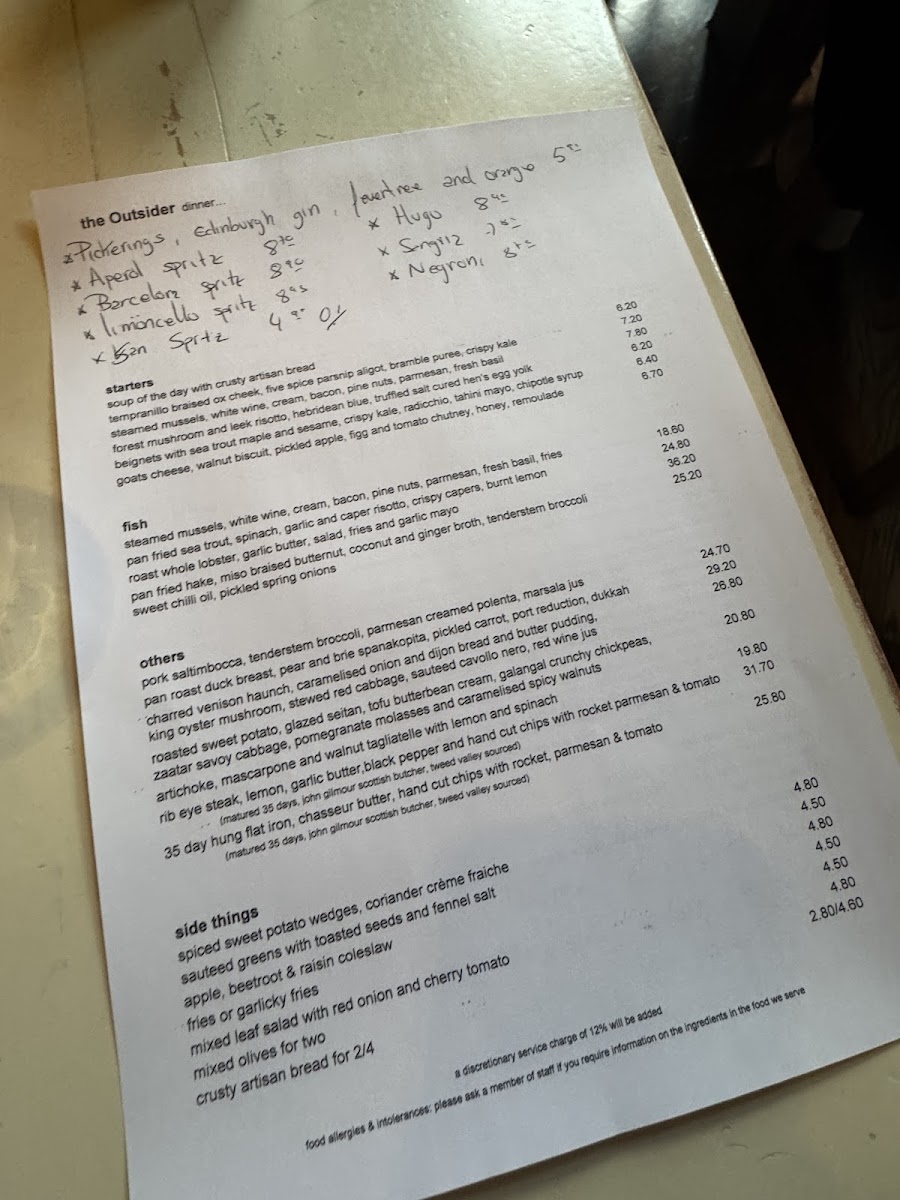 the Outsider dinner...
* Pickerings, Edinburgh gin, fevertree and orange 5
* Aperol spritz
* Hugo
* Barcelona spritz
* limoncello spritz
* Negroni
* San Spritz 0%
starters
soup of the day with crusty artisan bread 6.20
tempranillo braised ox cheek, five spice parsnip aligot, bramble puree, crispy kale 7.20
steamed mussels, white wine, cream, bacon, pine nuts, parmesan, fresh basil 7.80
forest mushroom and leek risotto, hebridean blue, truffled salt cured hen's egg yolk 6.20
beignets with sea trout maple and sesame, crispy kale, radicchio, tahini mayo, chipotle syrup 6.40
goats cheese, walnut biscuit, pickled apple, figg and tomato chutney, honey, remoulade 6.70
fish
steamed mussels, white wine, cream, bacon, pine nuts, parmesan, fresh basil, fries 18.60
pan fried sea trout, spinach, garlic and caper risotto, crispy capers, burnt lemon 24.80
roast whole lobster, garlic butter, salad, fries and garlic mayo 36.20
pan fried hake, miso braised butternut, coconut and ginger broth, tenderstem broccoli 25.20
sweet chilli oil, pickled spring onions
others
pork saltimbocca, tenderstem broccoli, parmesan creamed polenta, marsala jus 24.70
pan roast duck breast, pear and brie spanakopita, pickled carrot, port reduction, dukkah 29.20
charred venison haunch, caramelised onion and dijon bread and butter pudding, 26.80
king oyster mushroom, stewed red cabbage, sauteed cavollo nero, red wine jus
roasted sweet potato, glazed seitan, tofu butterbean cream, galangal crunchy chickpeas, 20.80
zaatar savoy cabbage, pomegranate molasses and caramelised spicy walnuts
artichoke, mascarpone and walnut tagliatelle with lemon and spinach 19.80
rib eye steak, lemon, garlic butter,black pepper and hand cut chips with rocket parmesan & tomato 31.70
(matured 35 days, john gilmour scottish butcher, tweed valley sourced)
35 day hung flat iron, chasseur butter, hand cut chips with rocket, parmesan & tomato 25.80
(matured 35 days, john gilmour scottish butcher, tweed valley sourced)
side things
spiced sweet potato wedges, coriander crème fraiche 4.80
sauteed greens with toasted seeds and fennel salt 4.50
apple, beetroot & raisin coleslaw 4.80
fries or garlicky fries 4.50
mixed leaf salad with red onion and cherry tomato 4.50
mixed olives for two 4.80
crusty artisan bread for 2/4 2.80/4.60
a discretionary service charge of 12% will be added
food allergies & intolerances: please ask a member of staff if you require information on the ingredients in the food we serve